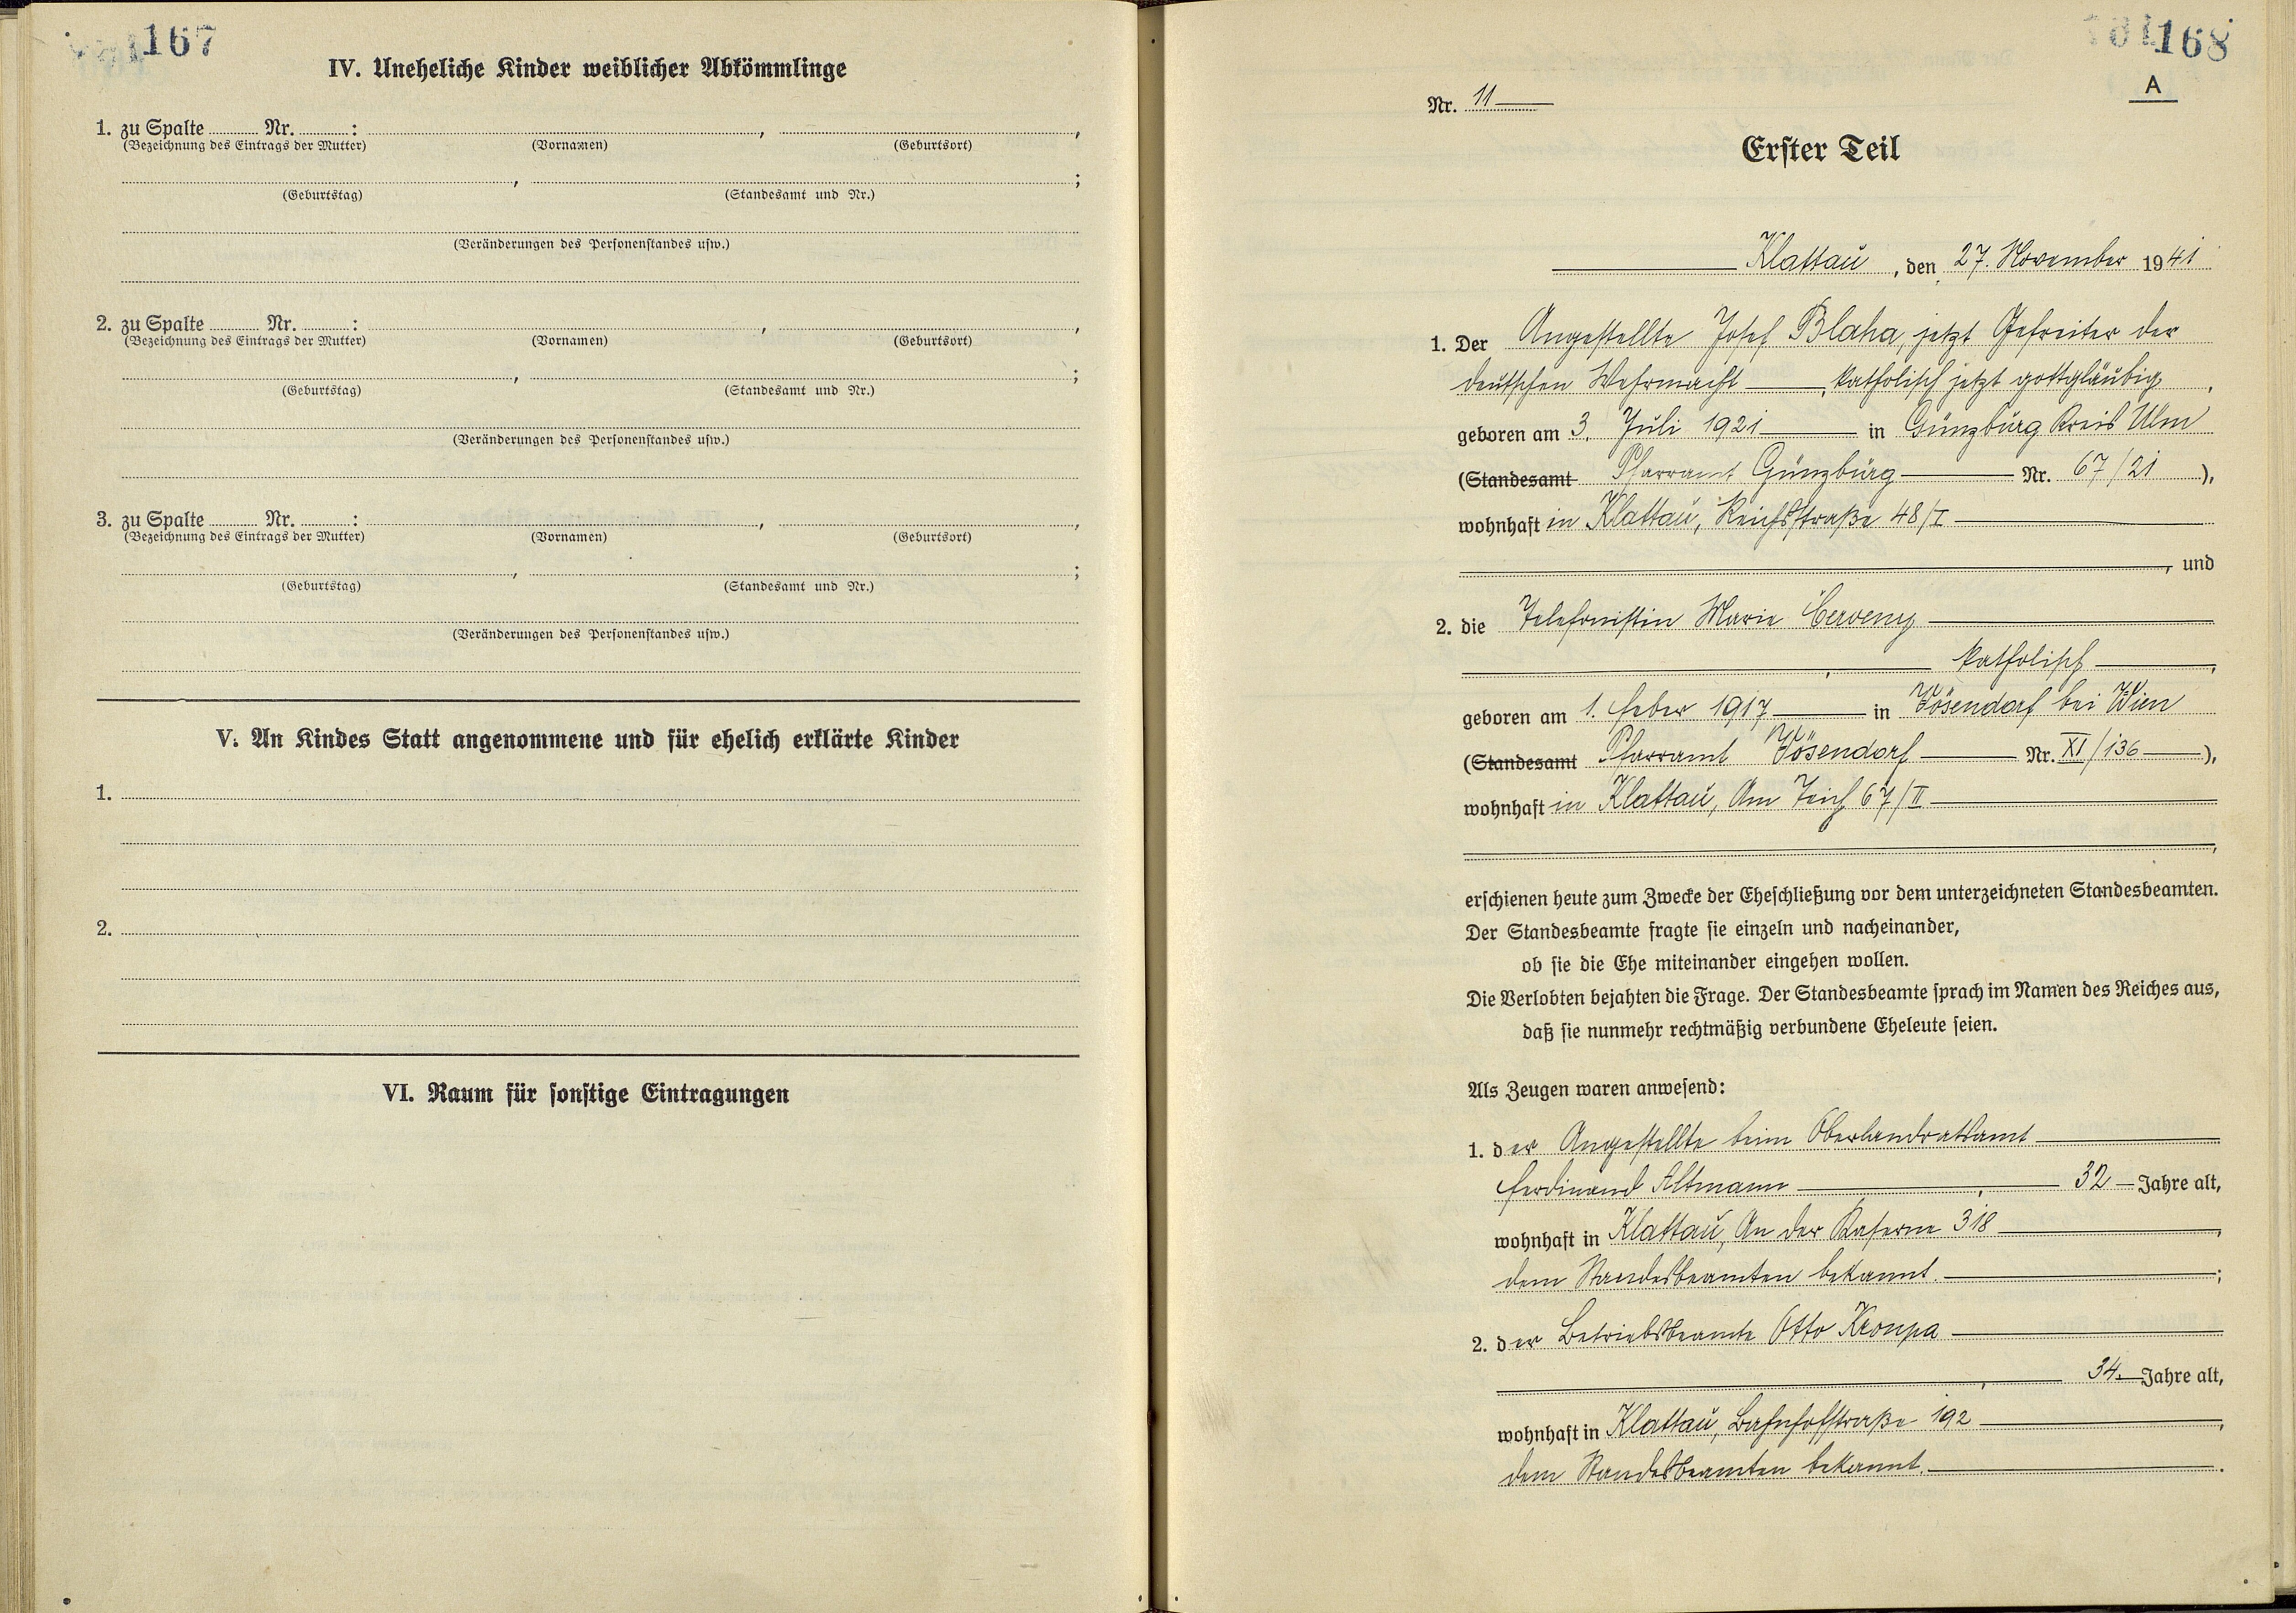 167
IV. Uneheliche Kinder weiblicher Abkömmlinge
1. zu Spalte Nr. : , ,
(Bezeichnung des Eintrags der Mutter) (Vornamen) (Geburtsort)
, ;
(Geburtstag) (Standesamt und Nr.)
(Veränderungen des Personenstandes usw.)
2. zu Spalte Nr. : , ,
(Bezeichnung des Eintrags der Mutter) (Vornamen) (Geburtsort)
, ;
(Geburtstag) (Standesamt und Nr.)
(Veränderungen des Personenstandes usw.)
3. zu Spalte Nr. : , ,
(Bezeichnung des Eintrags der Mutter) (Vornamen) (Geburtsort)
, ;
(Geburtstag) (Standesamt und Nr.)
(Veränderungen des Personenstandes usw.)
V. An Kindes Statt angenommene und für ehelich erklärte Kinder
1.
2.
VI. Raum für sonstige Eintragungen
168
A
Nr. 11
Erster Teil
Klattau, den 27. November 1941
1. Der Angestellte Josef Blaha, jetzt Gefreiter der
deutschen Wehrmacht, katholisch jetzt gottgläubig,
geboren am 3. Juli 1921 in Günzburg Kreis Ulm
(Standesamt Pfarramt Günzburg Nr. 67/21),
wohnhaft in Klattau, Reichsstraße 48/I
, und
2. die Telefonistin Marie Červeny
, katholisch,
geboren am 1. Feber 1917 in Vösendorf bei Wien
(Standesamt Pfarramt Vösendorf Nr. XI/136),
wohnhaft in Klattau, Am Teich 67/II
,
erschienen heute zum Zwecke der Eheschließung vor dem unterzeichneten Standesbeamten.
Der Standesbeamte fragte sie einzeln und nacheinander,
ob sie die Ehe miteinander eingehen wollen.
Die Verlobten bejahten die Frage. Der Standesbeamte sprach im Namen des Reiches aus,
daß sie nunmehr rechtmäßig verbundene Eheleute seien.
Als Zeugen waren anwesend:
1. der Angestellte beim Oberlandratsamt
Ferdinand Altmann, 32 Jahre alt,
wohnhaft in Klattau, An der Kaserne 318,
dem Standesbeamten bekannt. ;
2. der Betriebsbeamte Otto Kroupa
, 34 Jahre alt,
wohnhaft in Klattau, Bahnhofstraße 192,
dem Standesbeamten bekannt.